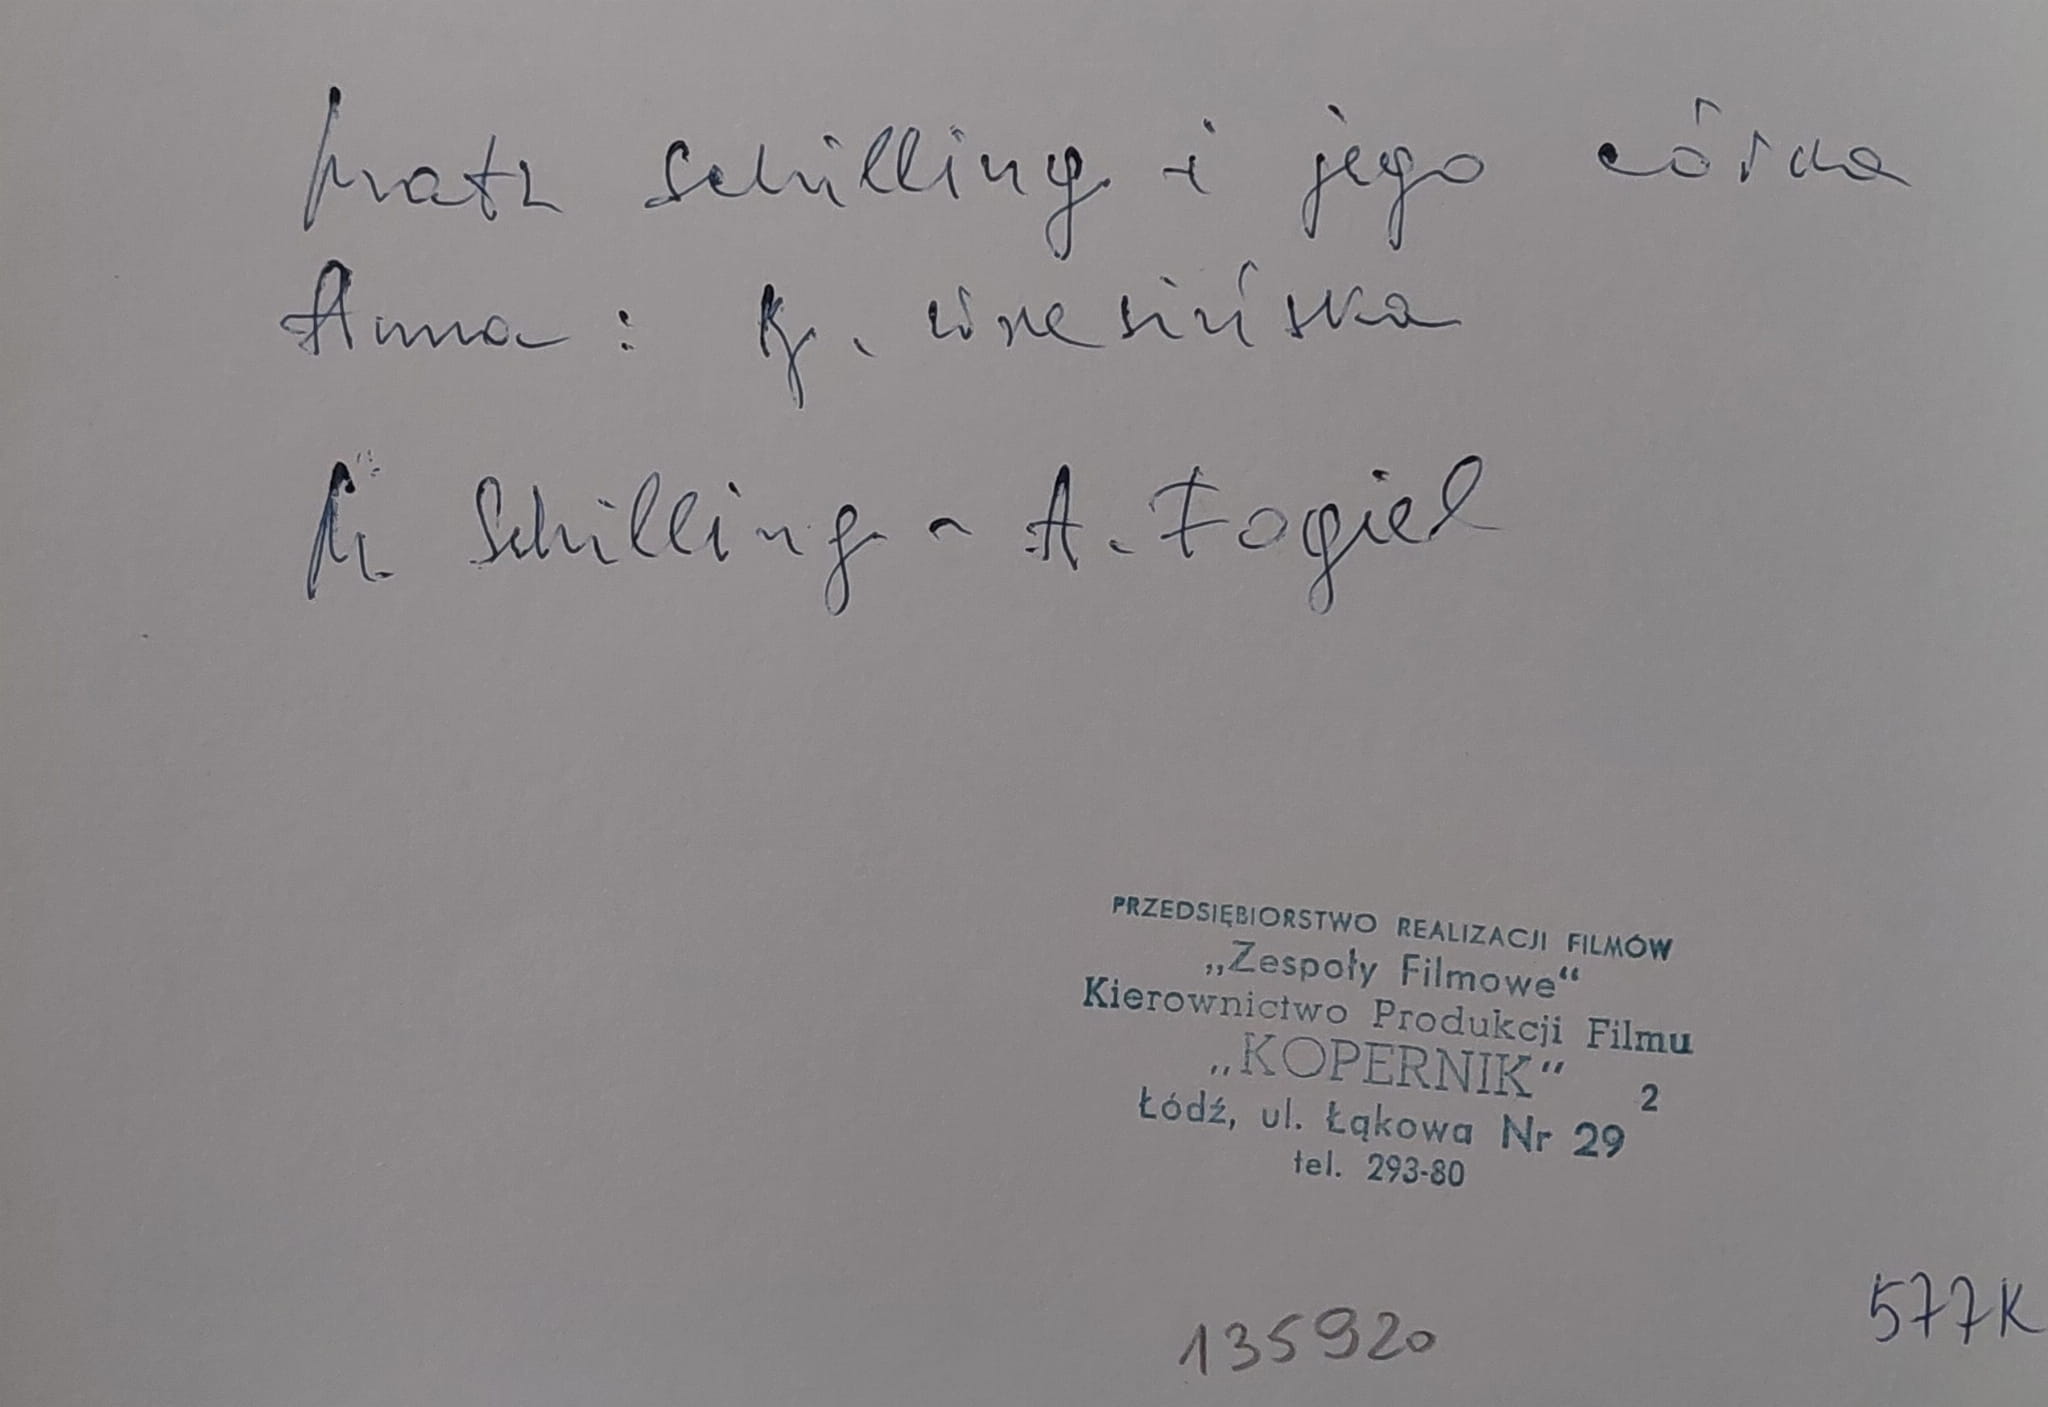 Matz Schilling i jego córka
Anna : B. Wrzesińska
M Schilling - A. Fogiel
PRZEDSIĘBIORSTWO REALIZACJI FILMÓW
„Zespoły Filmowe“
Kierownictwo Produkcji Filmu
„KOPERNIK“ 2
Łódź, ul. Łąkowa Nr 29
tel. 293-80
577K
135920